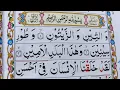 بِسْمِ اللّٰهِ الرَّحْمٰنِ الرَّحِيْمِ
وَالتِّيْنِ وَالزَّيْتُوْنِ ۙ وَطُوْرِ
سِيْنِيْنَ ۙ وَهٰذَا الْبَلَدِ الْاَمِيْنِ ۙ
لَقَدْ خَلَقْنَا الْاِنْسَانَ فِيْٓ اَحْسَنِ